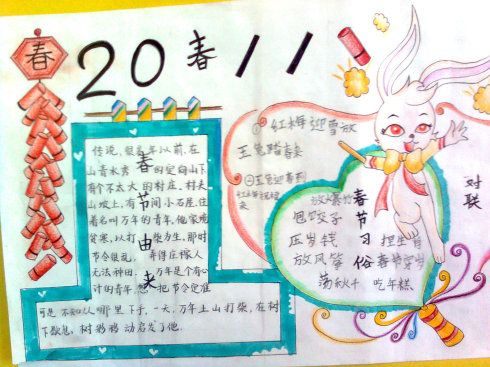 春
20春11
传说，很久以前，在
山青水秀的定向山下
有个不太大的村庄，村夫
山坡上，有间小石屋，住
着名叫万年的青年，他家境
贫寒，以打柴为生，那时
节令很乱，弄得庄稼人
无法种田。万年是个有心
计的青年，想把节令定准
可是不知从哪里下手，一天，万年上山打柴，在树
下歇息，树影移动启发了他。
春
节
由
来
①红梅迎雪放
玉兔踏春来
②玉兔迎春到
红梅祝福
来
对联
春
节
习
俗
放爆竹
包饺子
压岁钱
放风筝
荡秋千
吃年糕